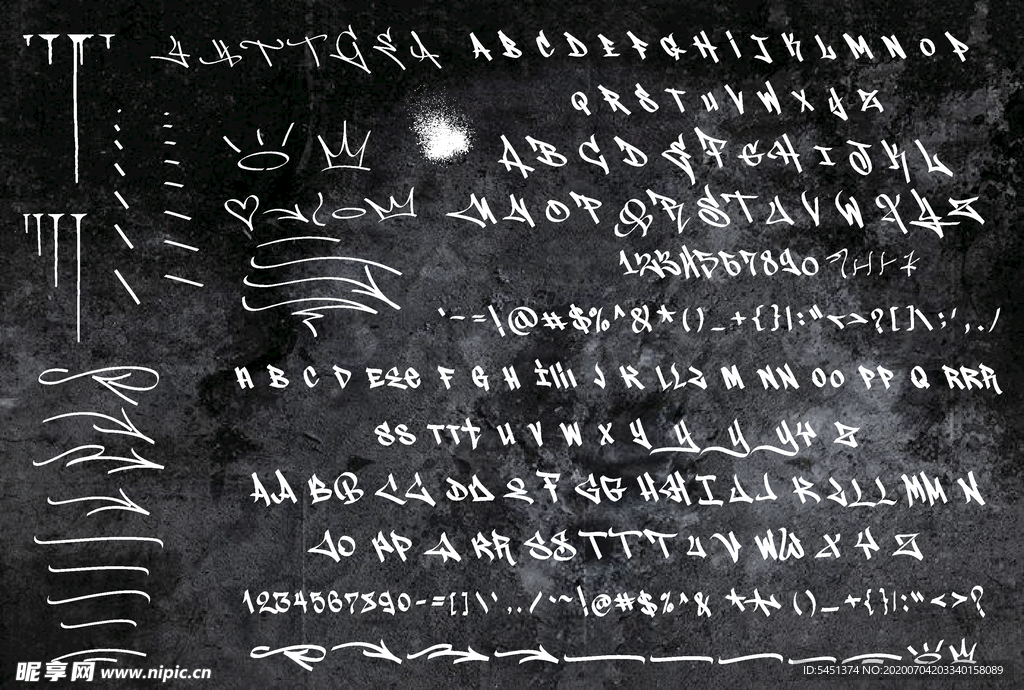 A B C D E F G H I J K L M N O P
Q R S T U V W X Y Z
A B C D E F G H I J K L
M N O P Q R S T U V W X Y Z
1234567890
`~-=!@#$%^&*()_+{}|:"<>?[]\;',./
A B C D EEE F G H IIII J K LLL M NN OO PP Q RRR
SS TTT U V W X Y Y Y YY Z
AA BB CC DD E F GG HH I JJ K LLLL MM N
OO PP Q RR SS TTT U V WW X Y Z
1234567890-=[]\',./`~!@#$%^& ** ()_+{}|:"<>?
昵享网 www.nipic.cn
ID:5451374 NO:20200704203340158089